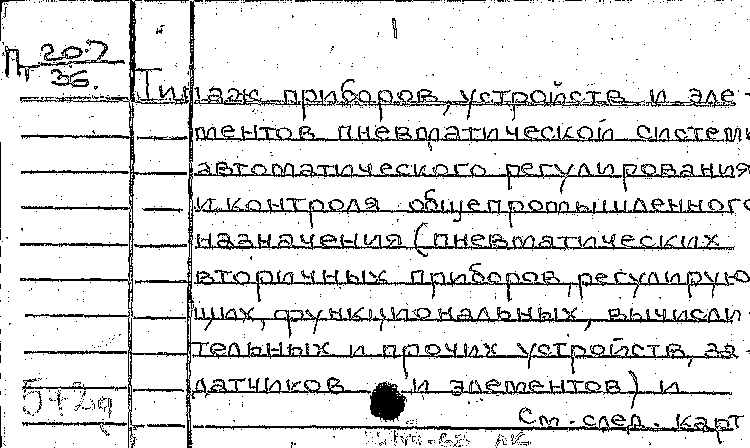 1
Пт 20.7
36.
Типаж приборов, устройств и эле-
ментов пневматической систем
автоматического регулирования
и контроля общепромышленного
назначения (пневматических
вторичных приборов, регулирую
щих, функциональных, вычисли-
тельных и прочих устройств, за-
датчиков и элементов) и
См. след. карт
572д